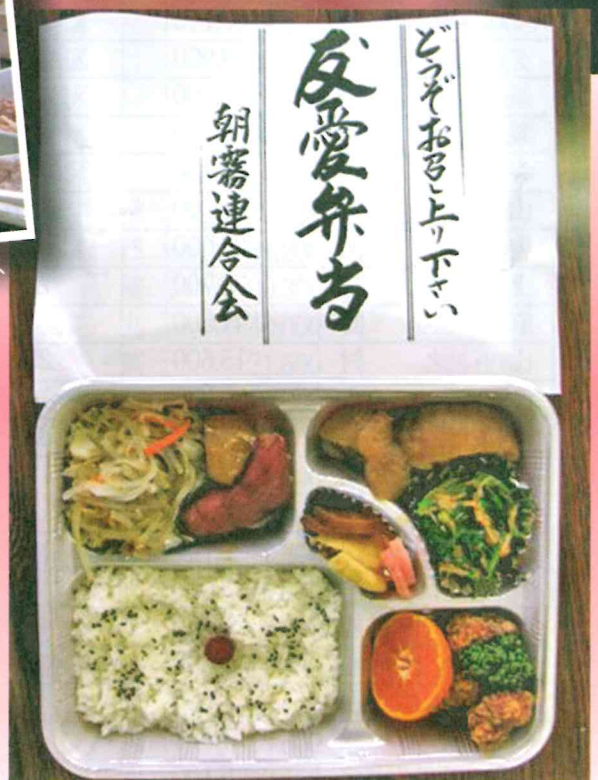 どうぞお召し上り下さい
友愛弁当
朝霧連合会